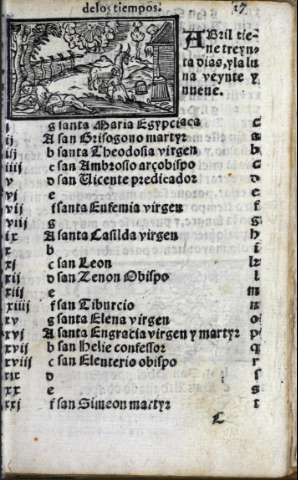 delos tiempos. 17
ABril tie-
ne treyn-
ta dias, y la lu
na veynte y
nueue.
i g santa Maria Egypciaca
ij A san Grisogono martyr
iij b santa Theodosia virgen
iiij c san Ambrosio arçobispo
v d san Vicente predicador
vj e
vij f santa Eufemia virgen
viij g
ix A santa Casilda virgen
x b
xj c san Leon
xij d san Zenon Obispo
xiij e
xiiij f san Tiburcio
xv g santa Elena virgen
xvj A santa Engracia virgen y martyr
xvij b san Helie confessor
xviij c san Elenterio obispo
xix d
xx e
xxj f san Simeon martyr